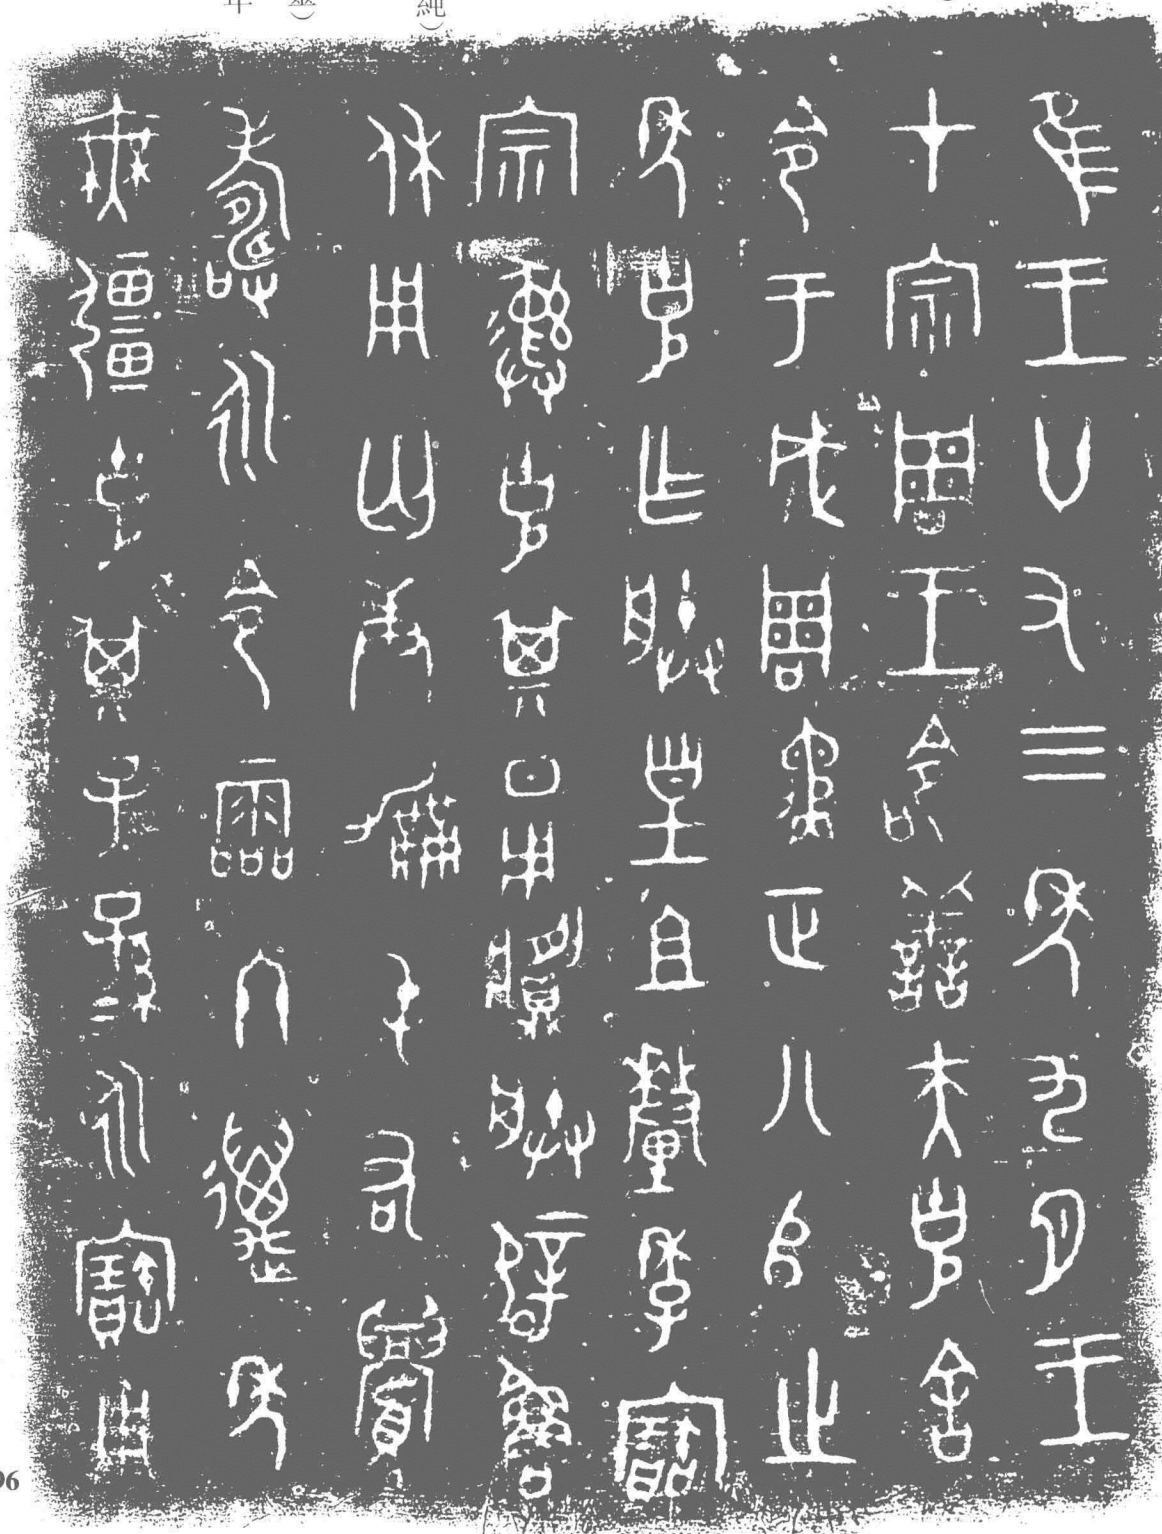 隹王廿又三年九月王
才宗周王命善夫克舍
令于成周遹正八𠂤之
年克乍朕皇且釐季寶
宗彝克其日用𩰬朕辟魯
休用匄康屯右眉
壽永令霝冬邁年
無彊克其子=孫=永寶用
純